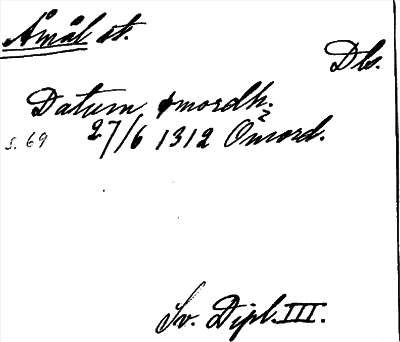 Åmål st.
Dls.
Datum
s. 69 27/6 1312
Sv. Dipl. III.